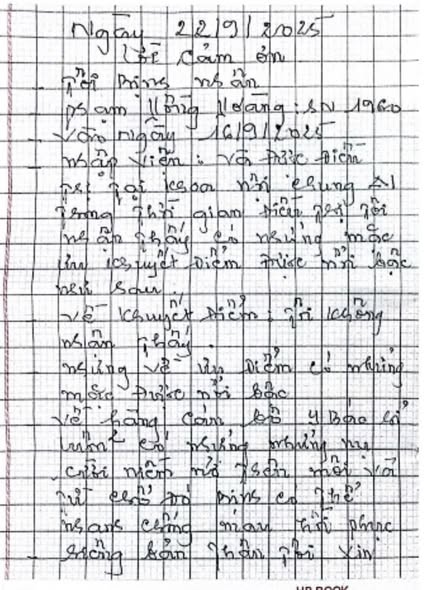 Ngày 22/9/2025
Lời cảm ơn
Tôi Bệnh nhân
phạm Hồng Hoàng: SN 1960
Vào ngày 16/9/2025
nhập viện: và được điều
trị tại khoa nội chung A1
trong thời gian điều trị tôi
nhận thấy có những mặc
ưu khuyết điểm được nổi bậc
như sau:
về khuyết điểm: tôi không
nhận thấy.
những về ưu điểm có những
mặc được nổi bậc
về hàng cán bộ y Bác sĩ
luôn có những những nụ
cười niềm nở trên môi và
từ chổ đó bệnh có thể
nhanh chóng mau hồi phục
riêng bản thân tôi xin